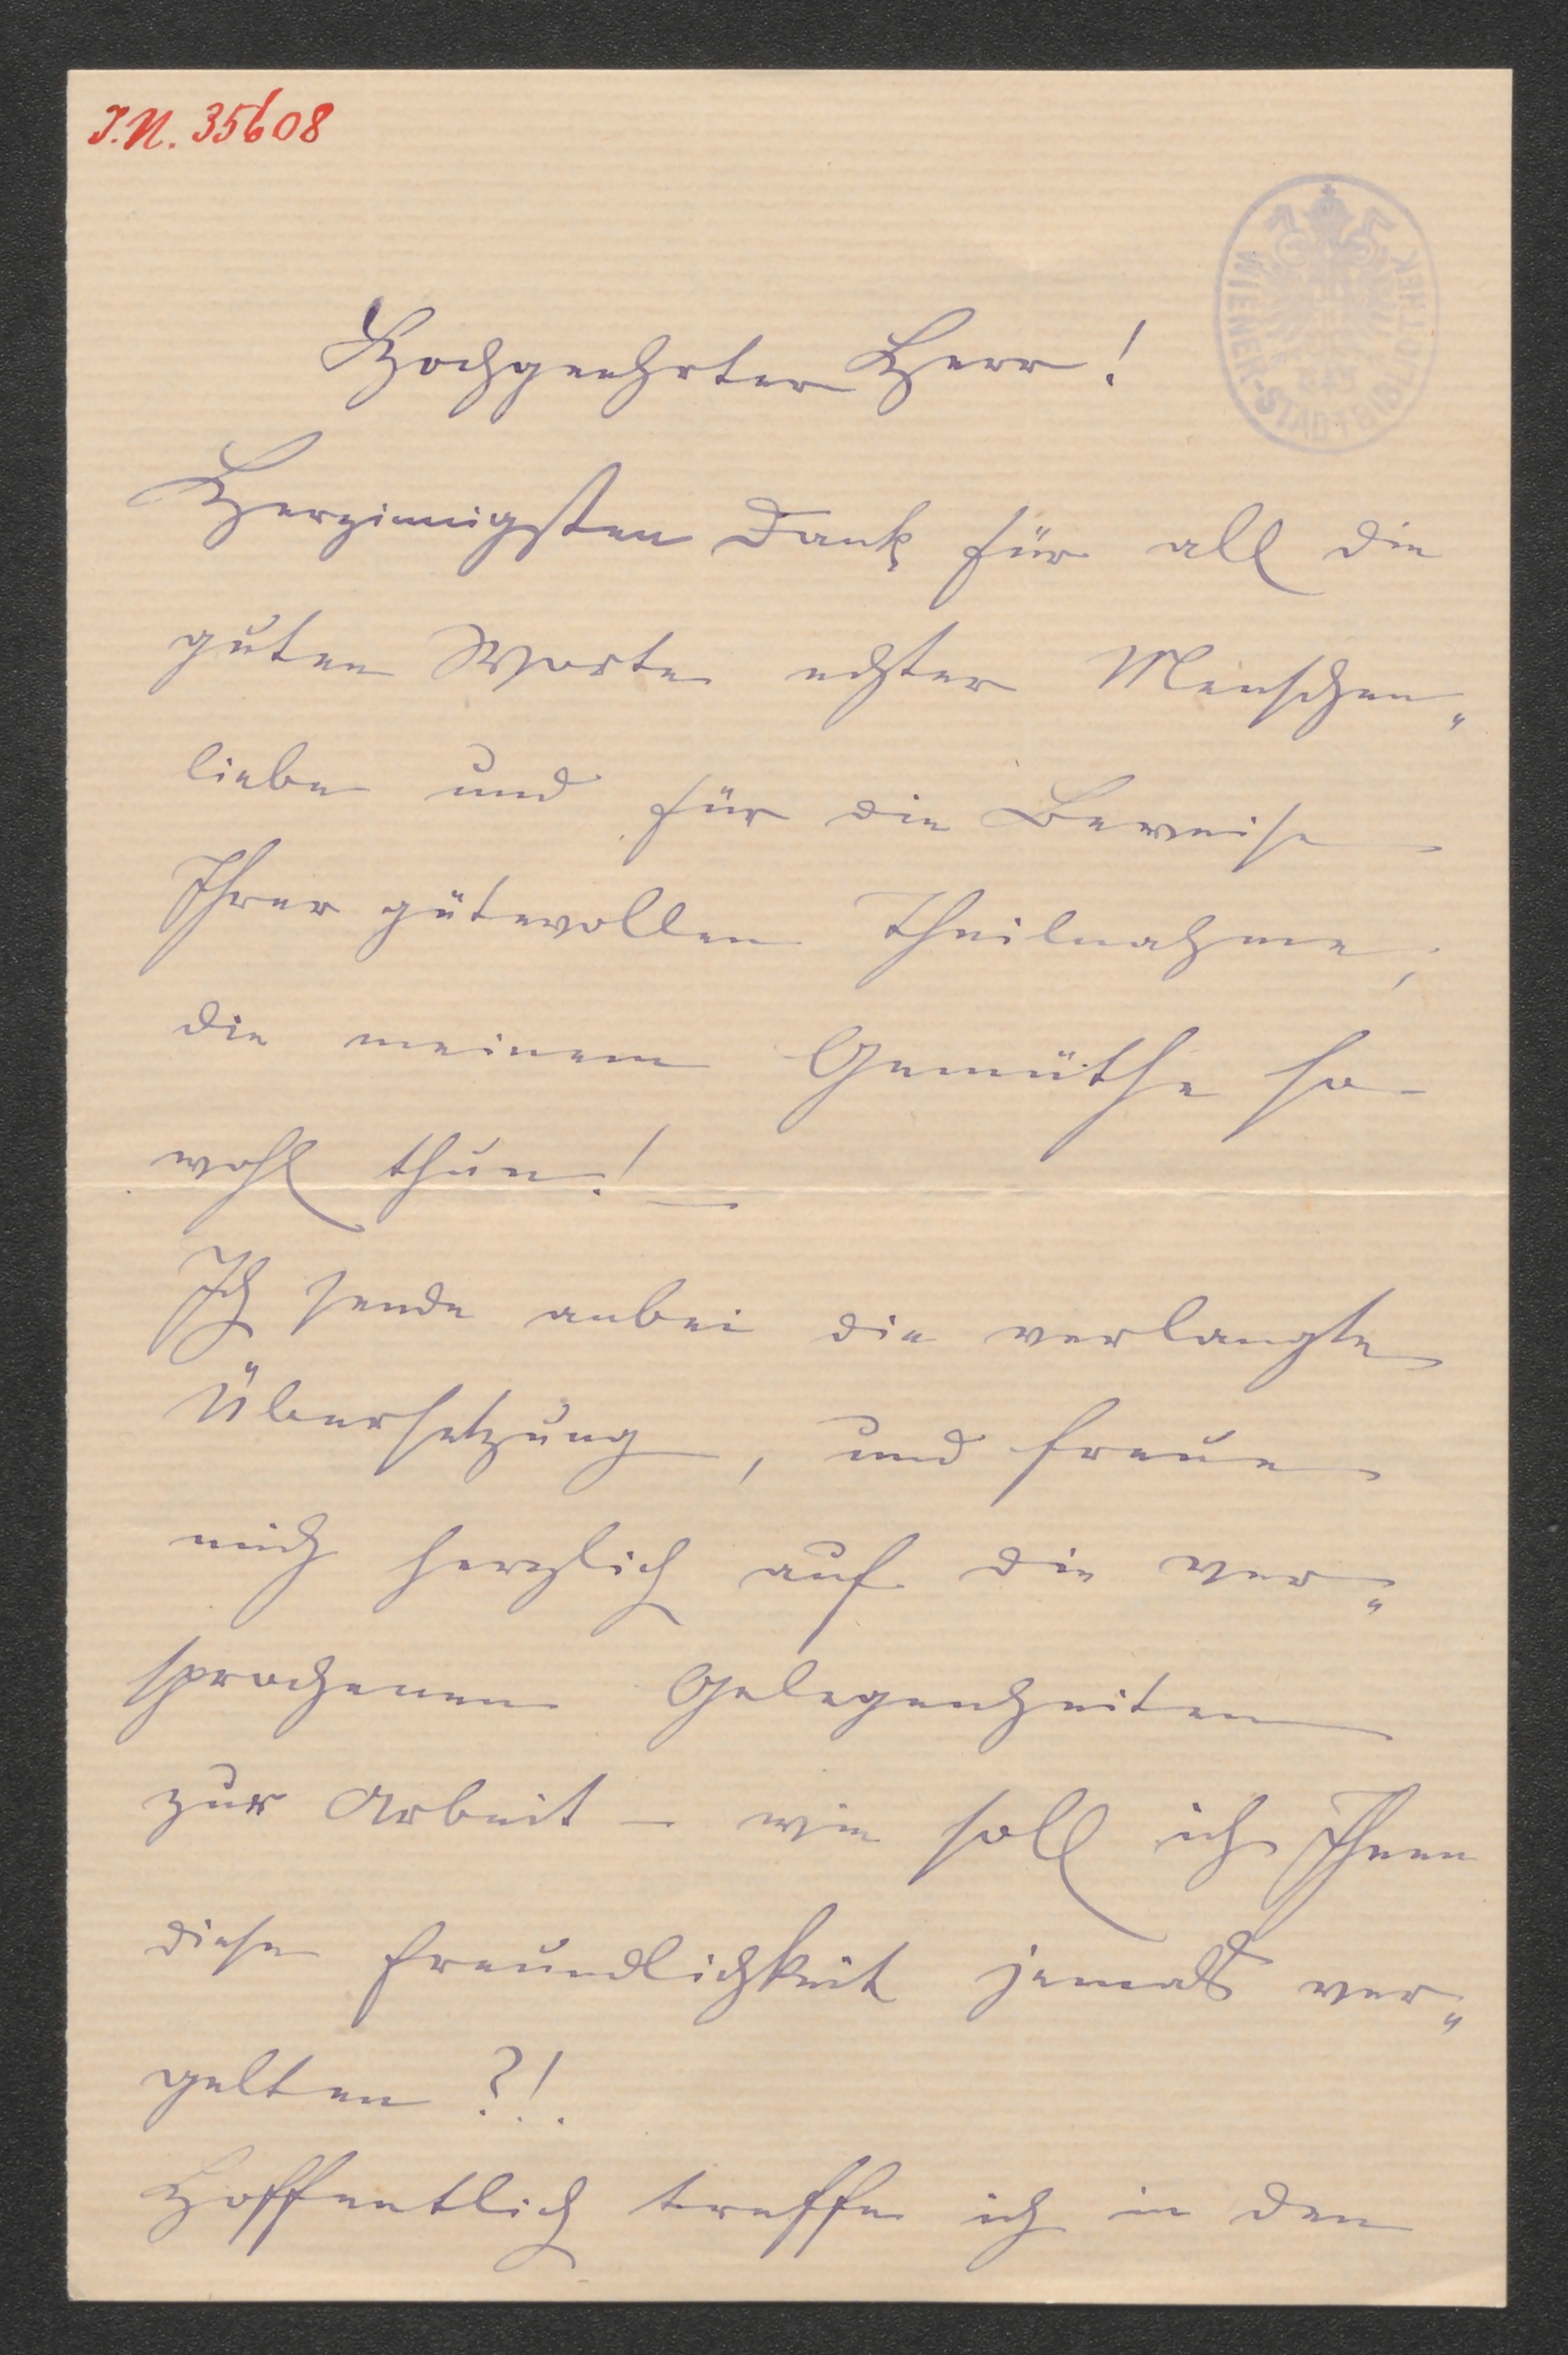 J.N. 35608
WIENER-STADTBIBLIOTHEK
Hochgeehrter Herr!
Herzinnigsten Dank für all die
guten Worte echter Menschen„
liebe und für die Beweise
Ihrer gütevollen Theilnahme,
die meinem Gemüthe so
wohl thun! –
Ich sende anbei die verlangte
Übersetzung, und freue
mich herzlich auf die ver„
sprochenen Gelegenheiten
zur Arbeit – wie soll ich Ihnen
diese Freundlichkeit jemals ver„
gelten?!.
Hoffentlich treffe ich in den